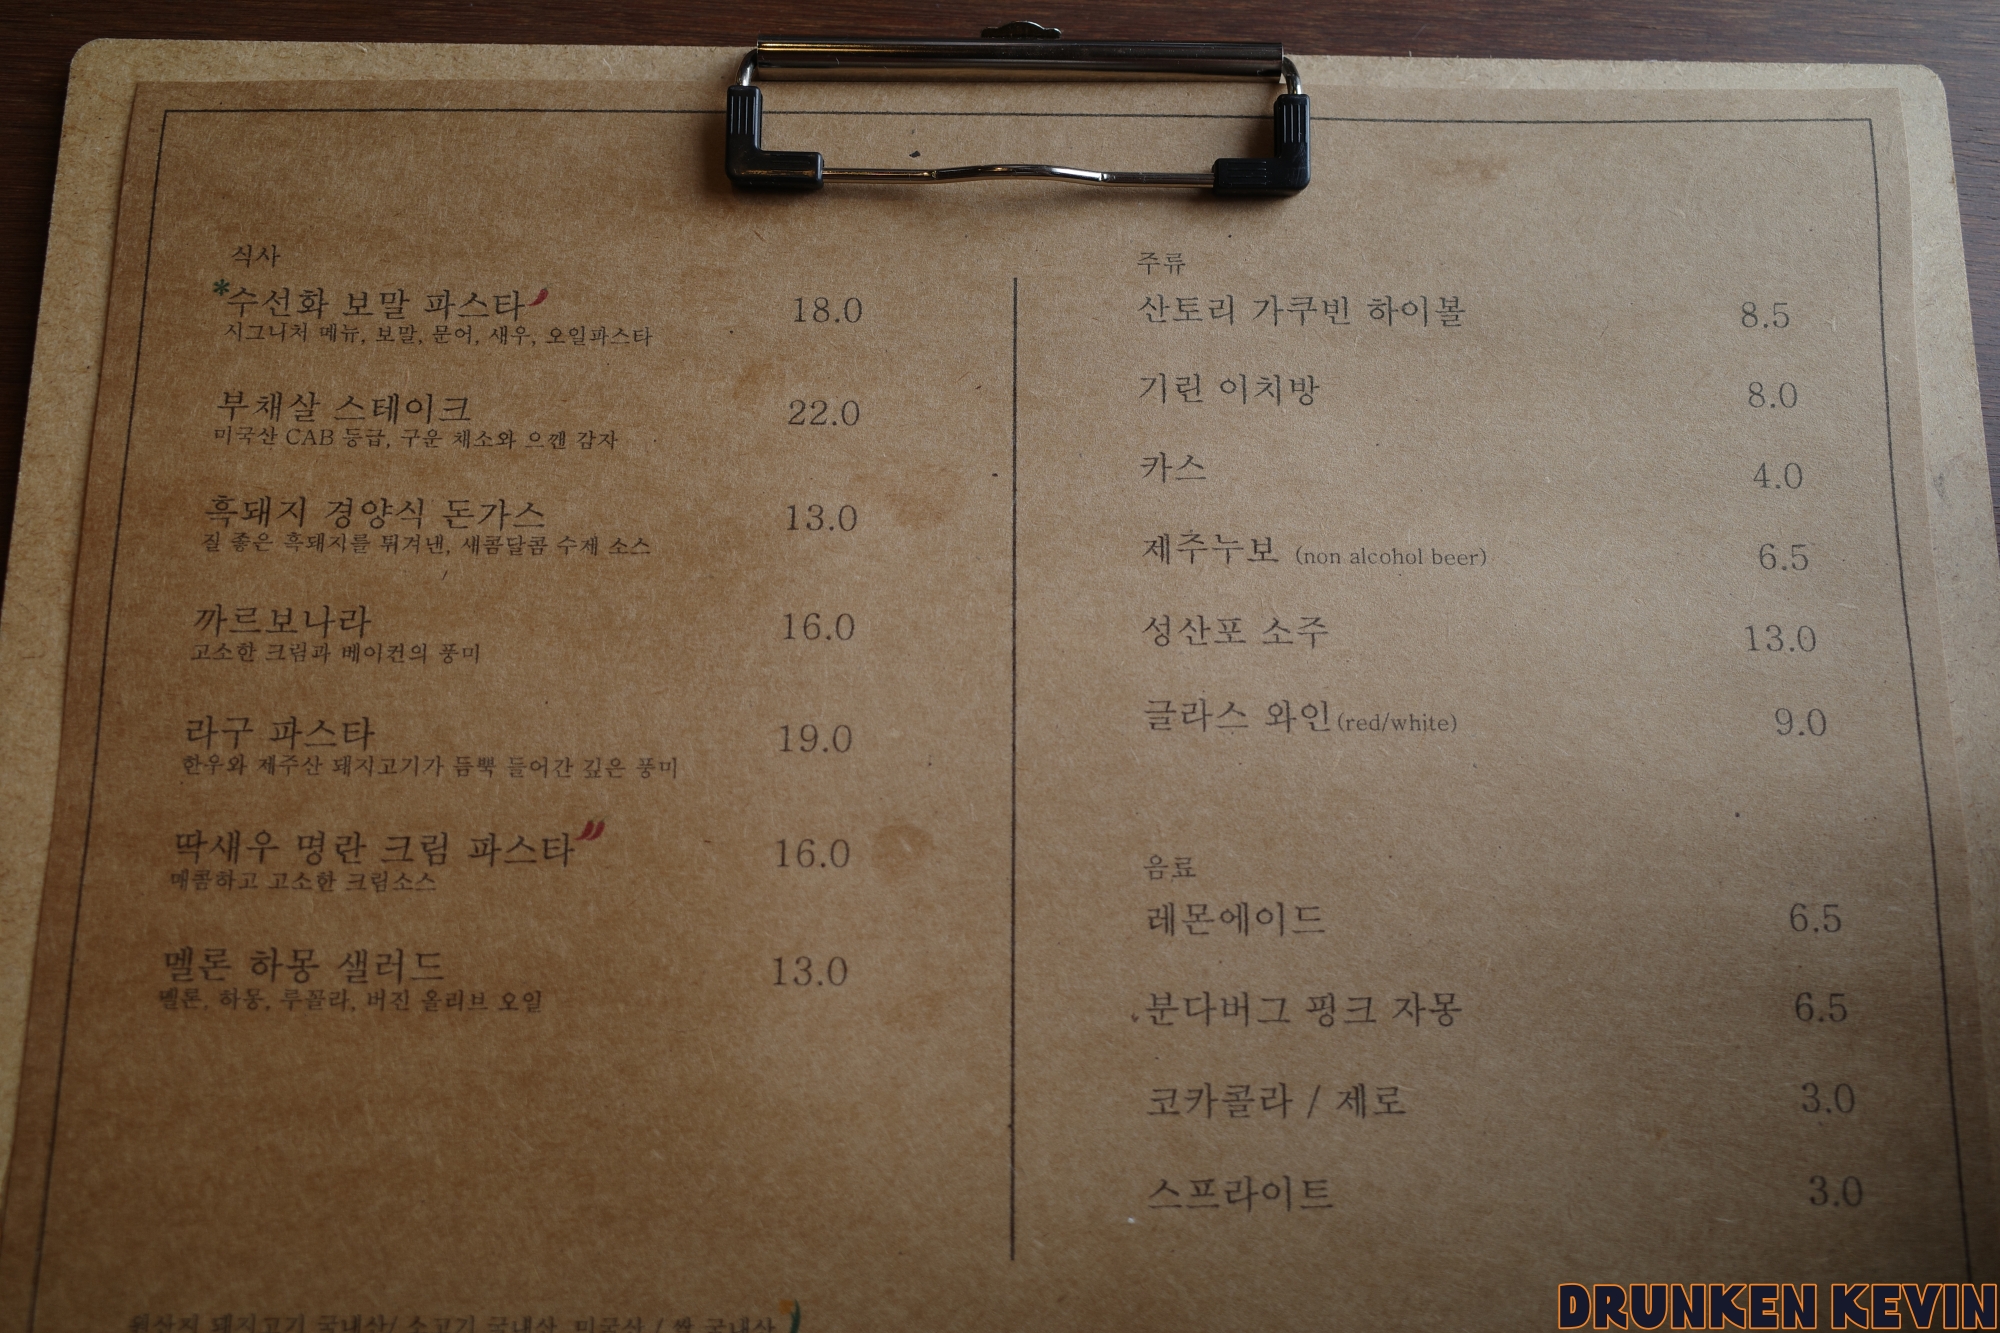 식사
*수선화 보말 파스타 18.0
시그니처 메뉴, 보말, 문어, 새우, 오일파스타
부채살 스테이크 22.0
미국산 CAB 등급, 구운 채소와 으깬 감자
흑돼지 경양식 돈가스 13.0
질 좋은 흑돼지를 튀겨낸, 새콤달콤 수제 소스
까르보나라 16.0
고소한 크림과 베이컨의 풍미
라구 파스타 19.0
한우와 제주산 돼지고기가 듬뿍 들어간 깊은 풍미
딱새우 명란 크림 파스타 16.0
매콤하고 고소한 크림소스
멜론 하몽 샐러드 13.0
멜론, 하몽, 루꼴라, 버진 올리브 오일
원산지 돼지고기 국내산/ 소고기 국내산, 미국산 / 쌀 국내산
주류
산토리 가쿠빈 하이볼 8.5
기린 이치방 8.0
카스 4.0
제주누보 (non alcohol beer) 6.5
성산포 소주 13.0
글라스 와인(red/white) 9.0
음료
레몬에이드 6.5
분다버그 핑크 자몽 6.5
코카콜라 / 제로 3.0
스프라이트 3.0
DRUNKEN KEVIN